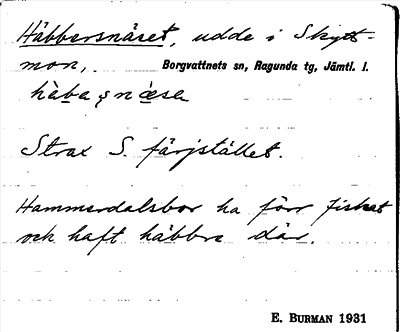 Häbbersnäset, udde i Skytt-
mon, Borgvattnets sn, Ragunda tg, Jämtl. l.
Strax S. färjstället.
Hammerdalsbor ha förr fiskat
och haft häbbre där.
E. BURMAN 1931